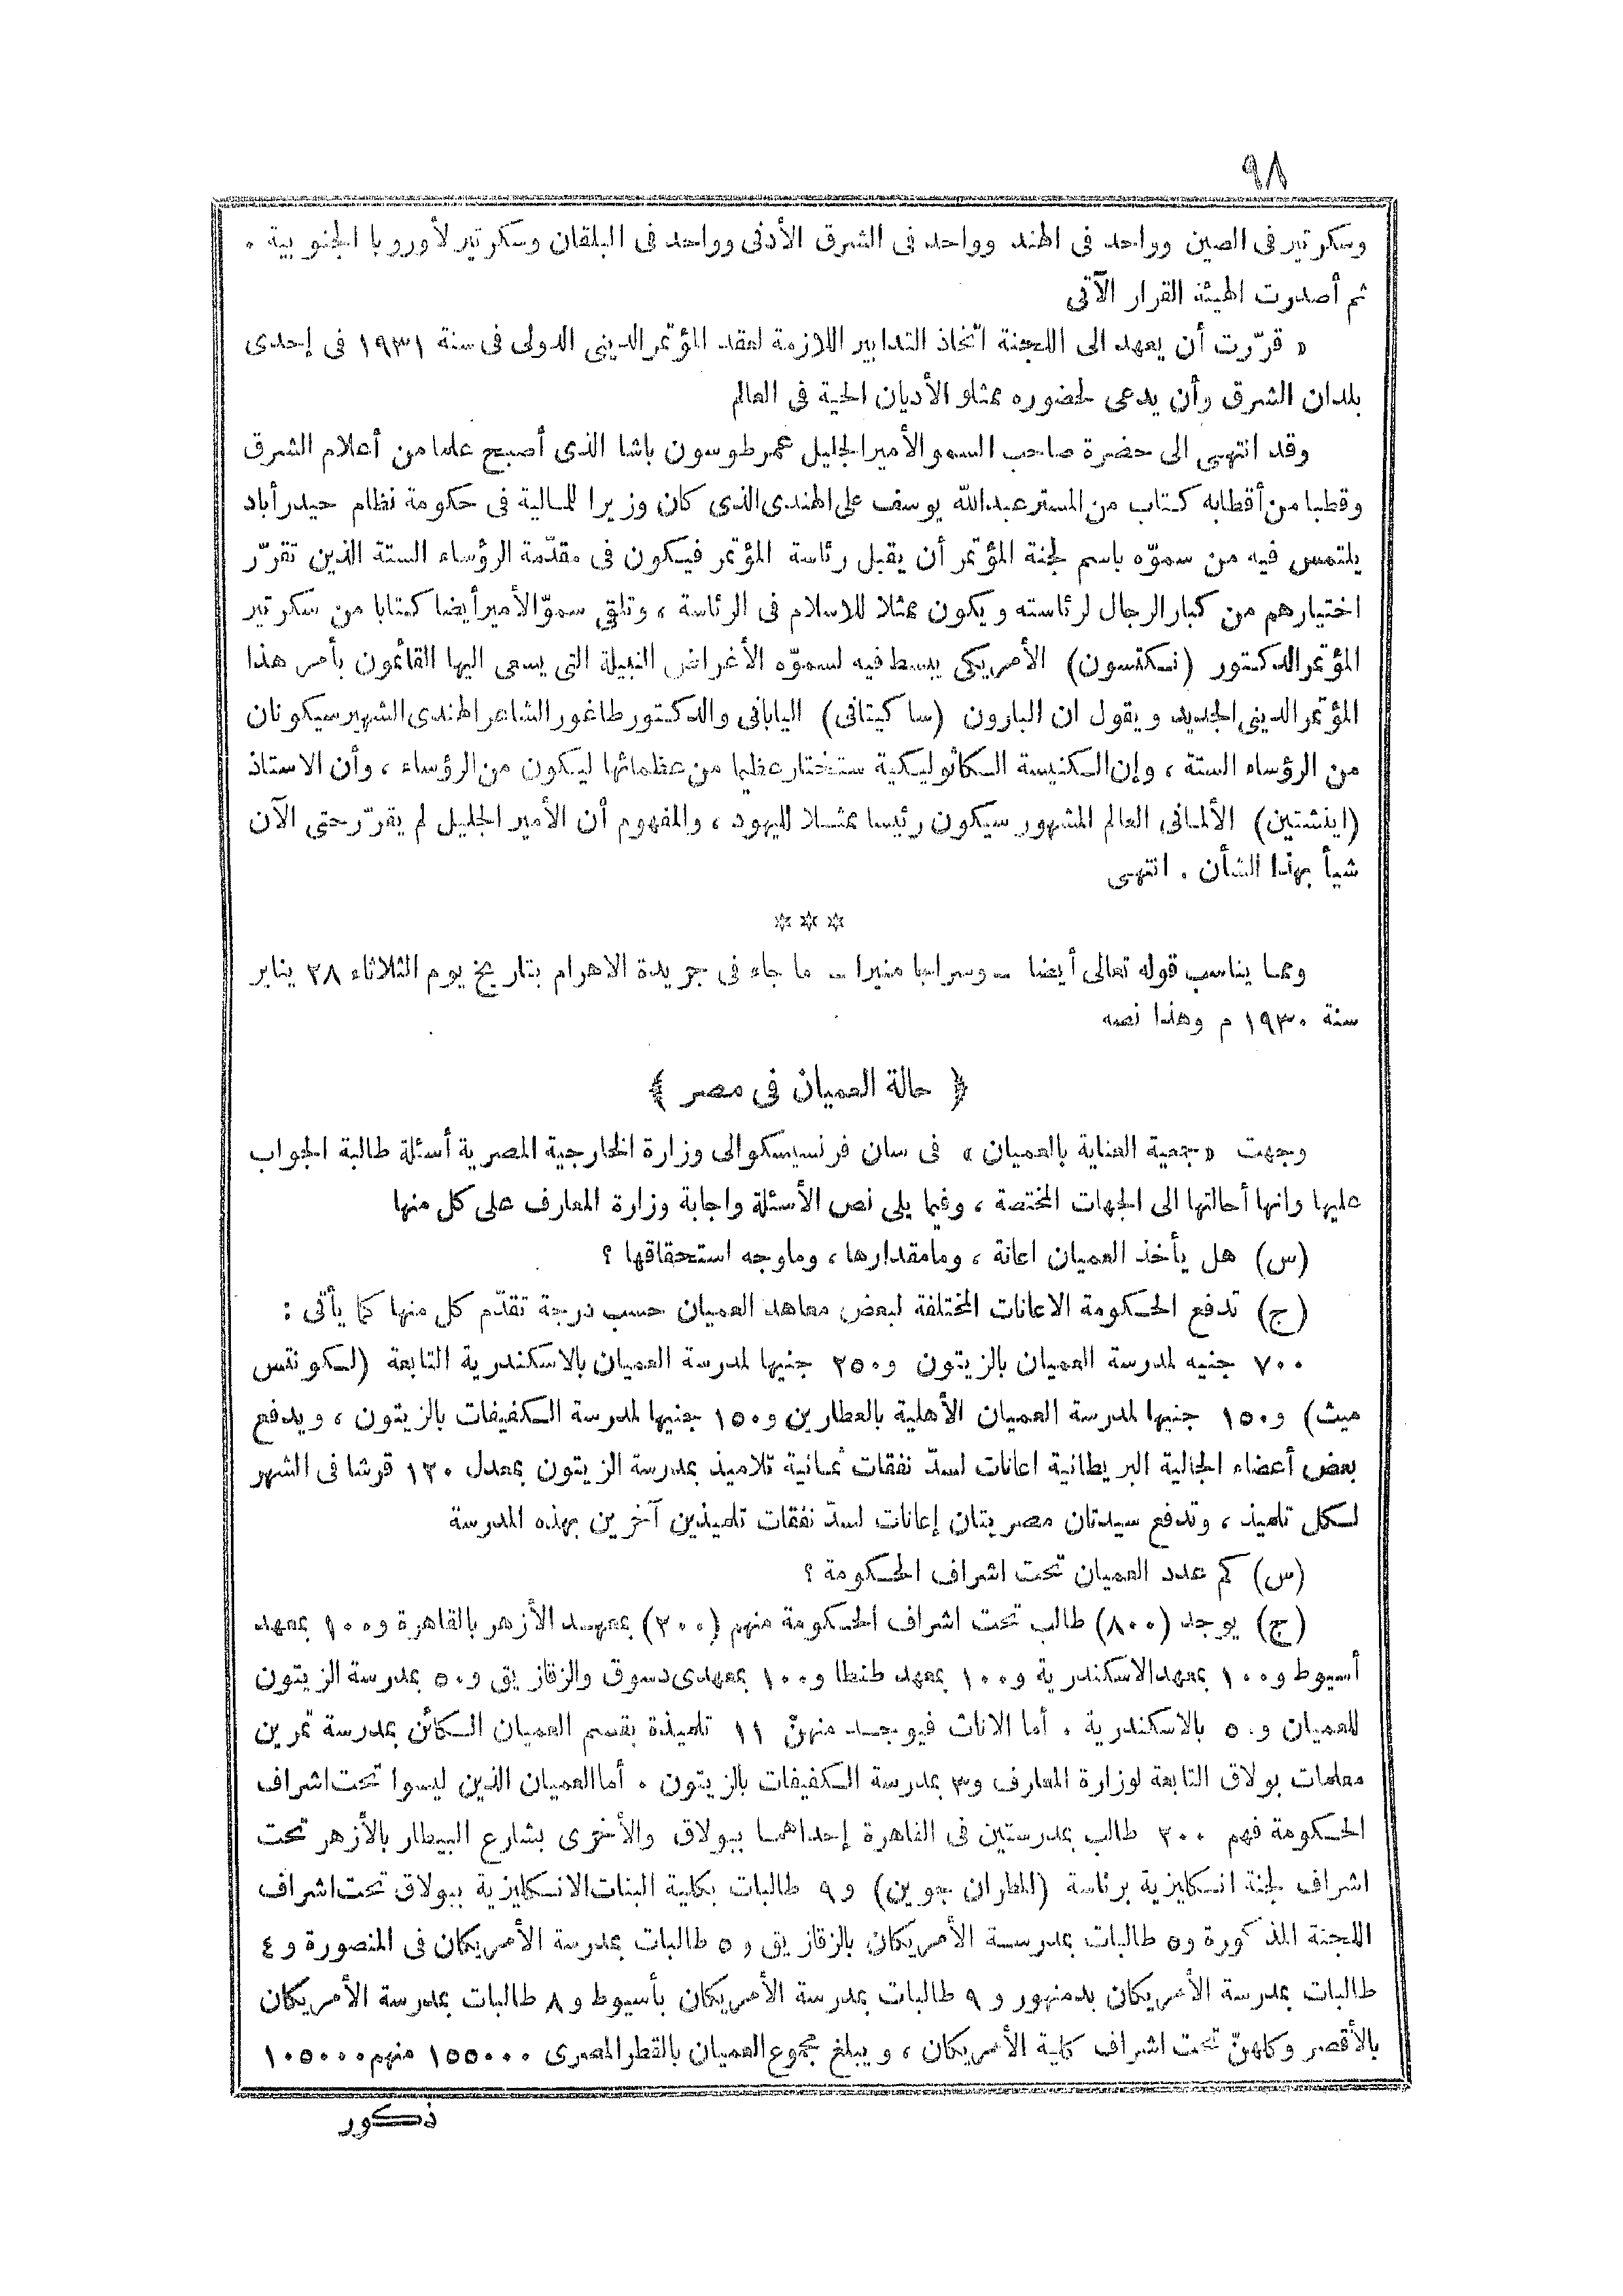 ٩٨
وسكرتير فى الصين وواحد فى الهند وواحد فى الشرق الأدنى وواحد فى البلقان وسكرتير لأوروبا الجنوبية .
ثم أصدرت الهيئة القرار الآتى
« قرّرت أن يعهد الى اللجنة اتخاذ التدابير اللازمة لعقد المؤتمر الدينى الدولى فى سنة ١٩٣١ فى إحدى
بلدان الشرق وأن يدعى لحضوره ممثلو الأديان الحية فى العالم
وقد انتهى الى حضرة صاحب السمو الأمير الجليل عمر طوسون باشا الذى أصبح علما من أعلام الشرق
وقطبا من أقطابه كتاب من المستر عبد الله يوسف على الهندى الذى كان وزيرا للمالية فى حكومة نظام حيدرأباد
يلتمس فيه من سموّه باسم لجنة المؤتمر أن يقبل رئاسة المؤتمر فيكون فى مقدّمة الرؤساء الستة الذين تقرّر
اختيارهم من كبار الرجال لرئاسته ويكون ممثلا للاسلام فى الرئاسة ، وتلقى سموّ الأمير أيضا كتابا من سكرتير
المؤتمر الدكتور (نكتسون) الأمريكى يبسط فيه لسموّه الأغراض النبيلة التى يسعى اليها القائمون بأمر هذا
المؤتمر الدينى الجديد ويقول ان البارون (ساكيتانى) اليابانى والدكتور طاغور الشاعر الهندى الشهير سيكونان
من الرؤساء الستة ، وإن الكنيسة الكاثوليكية ستختار عظيما من عظمائها ليكون من الرؤساء ، وأن الاستاذ
(اينشتين) الألمانى العالم المشهور سيكون رئيسا ممثلا لليهود ، والمفهوم أن الأمير الجليل لم يقرّر حتى الآن
شيأ بهذا الشأن . انتهى
* * *
ومما يناسب قوله تعالى أيضا - وسراجا منيرا - ما جاء فى جريدة الاهرام بتاريخ يوم الثلاثاء ٢٨ يناير
سنة ١٩٣٠ م وهذا نصه
﴿ حالة العميان فى مصر ﴾
وجهت «جمعية العناية بالعميان» فى سان فرنسيسكو الى وزارة الخارجية المصرية أسئلة طالبة الجواب
عليها وانها أحالتها الى الجهات المختصة ، وفيما يلى نص الأسئلة واجابة وزارة المعارف على كل منها
(س) هل يأخذ العميان اعانة ، وما مقدارها ، وما وجه استحقاقها ؟
(ج) تدفع الحكومة الاعانات المختلفة لبعض معاهد العميان حسب درجة تقدّم كل منها كما يأتى :
٧٠٠ جنيه لمدرسة العميان بالزيتون و ٢٥٠ جنيها لمدرسة العميان بالاسكندرية التابعة (لكونتس
ميث) و ١٥٠ جنيها لمدرسة العميان الأهلية بالعطارين و ١٥٠ جنيها لمدرسة الكفيفات بالزيتون ، ويدفع
بعض أعضاء الجالية البريطانية اعانات لسدّ نفقات ثمانية تلاميذ بمدرسة الزيتون بمعدل ١٢٠ قرشا فى الشهر
لكل تلميذ ، وتدفع سيدتان مصريتان إعانات لسدّ نفقات تلميذين آخرين بهذه المدرسة
(س) كم عدد العميان تحت اشراف الحكومة ؟
(ج) يوجد (٨٠٠) طالب تحت اشراف الحكومة منهم (٣٠٠) بمعهد الأزهر بالقاهرة و ١٠٠ بمعهد
أسيوط و ١٠٠ بمعهد الاسكندرية و ١٠٠ بمعهد طنطا و ١٠٠ بمعهدى دسوق والزقازيق و ٥٠ بمدرسة الزيتون
للعميان و ٥٠ بالاسكندرية . أما الاناث فيوجد منهنّ ١١ تلميذة بقسم العميان الكائن بمدرسة تمرين
معلمات بولاق التابعة لوزارة المعارف و ٣ بمدرسة الكفيفات بالزيتون . أما العميان الذين ليسوا تحت اشراف
الحكومة فهم ٢٠٠ طالب بمدرستين فى القاهرة إحداهما ببولاق والأخرى بشارع البيطار بالأزهر تحت
اشراف لجنة انكليزية برئاسة (المطران جوين) و ٩ طالبات بكلية البنات الانكليزية ببولاق تحت اشراف
اللجنة المذكورة و ٥ طالبات بمدرسة الأمريكان بالزقازيق و ٥ طالبات بمدرسة الأمريكان فى المنصورة و ٤
طالبات بمدرسة الأمريكان بدمنهور و ٩ طالبات بمدرسة الأمريكان بأسيوط و ٨ طالبات بمدرسة الأمريكان
بالأقصر وكلهنّ تحت اشراف كلية الأمريكان ، ويبلغ مجموع العميان بالقطر المصرى ١٥٥٠٠٠ منهم ١٠٥٠٠٠
ذكور